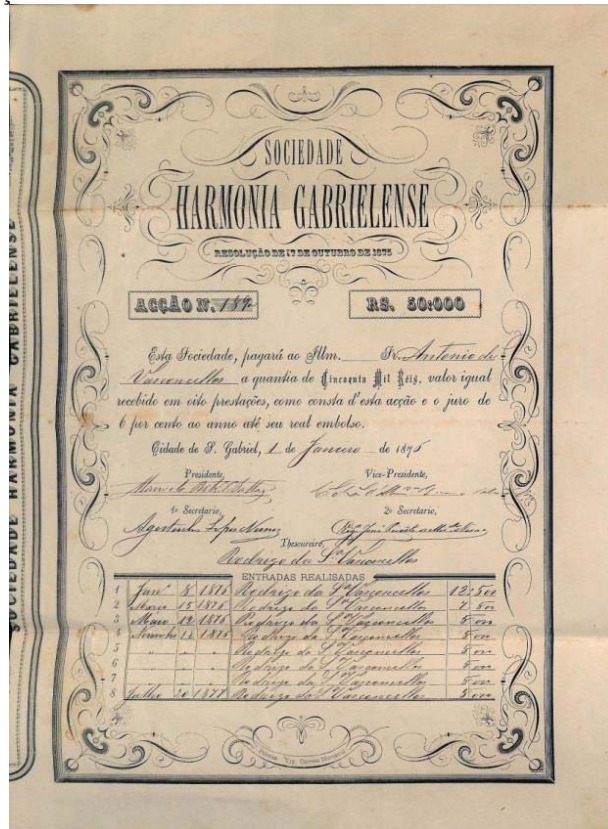 SOCIEDADE
HARMONIA GABRIELENSE
RESOLUÇÃO DE 17 DE OUTUBRO DE 1875
ACÇÃO N. RS. 50:000
Esta Sociedade, pagará ao Illm. Sr. Antonio de
Vasconcellos a quantia de Cincoenta Mil Réis, valor igual
recebido em oito prestações, como consta d'esta acção e o juro de
6 por cento ao anno até seu real embolso.
Cidade de S. Gabriel, 1 de Janeiro de 1876
Presidente, Vice-Presidente,
1º Secretario, 2º Secretario,
Agostinho Lopes Nunes
Thesoureiro,
Rodrigo da Sª Vasconcellos
ENTRADAS REALISADAS
1 Janº 8 1876 Rodrigo da Sª Vasconcellos 12:500
2 Março 15 1876 Rodrigo da Sª Vasconcellos 7 500
3 Maio 12 1876 Rodrigo da Sª Vasconcellos 5 000
4 1876 Rodrigo da Sª Vasconcellos 5 000
5 " " Rodrigo da Sª Vasconcellos 5 000
6 " " Rodrigo da Sª Vasconcellos 5 000
7 " " Rodrigo da Sª Vasconcellos 5 000
8 Julho 20 1877 Rodrigo da Sª Vasconcellos 5 000
SOCIEDADE HARMONIA GABRIELENSE